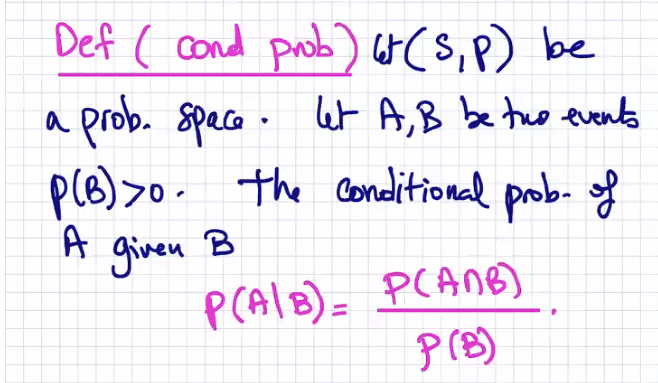 Def ( cond prob) let (S,P) be
a prob. space. let A,B be two events
P(B)>0. the conditional prob. of
A given B
P(A|B) = P(A∩B) / P(B).